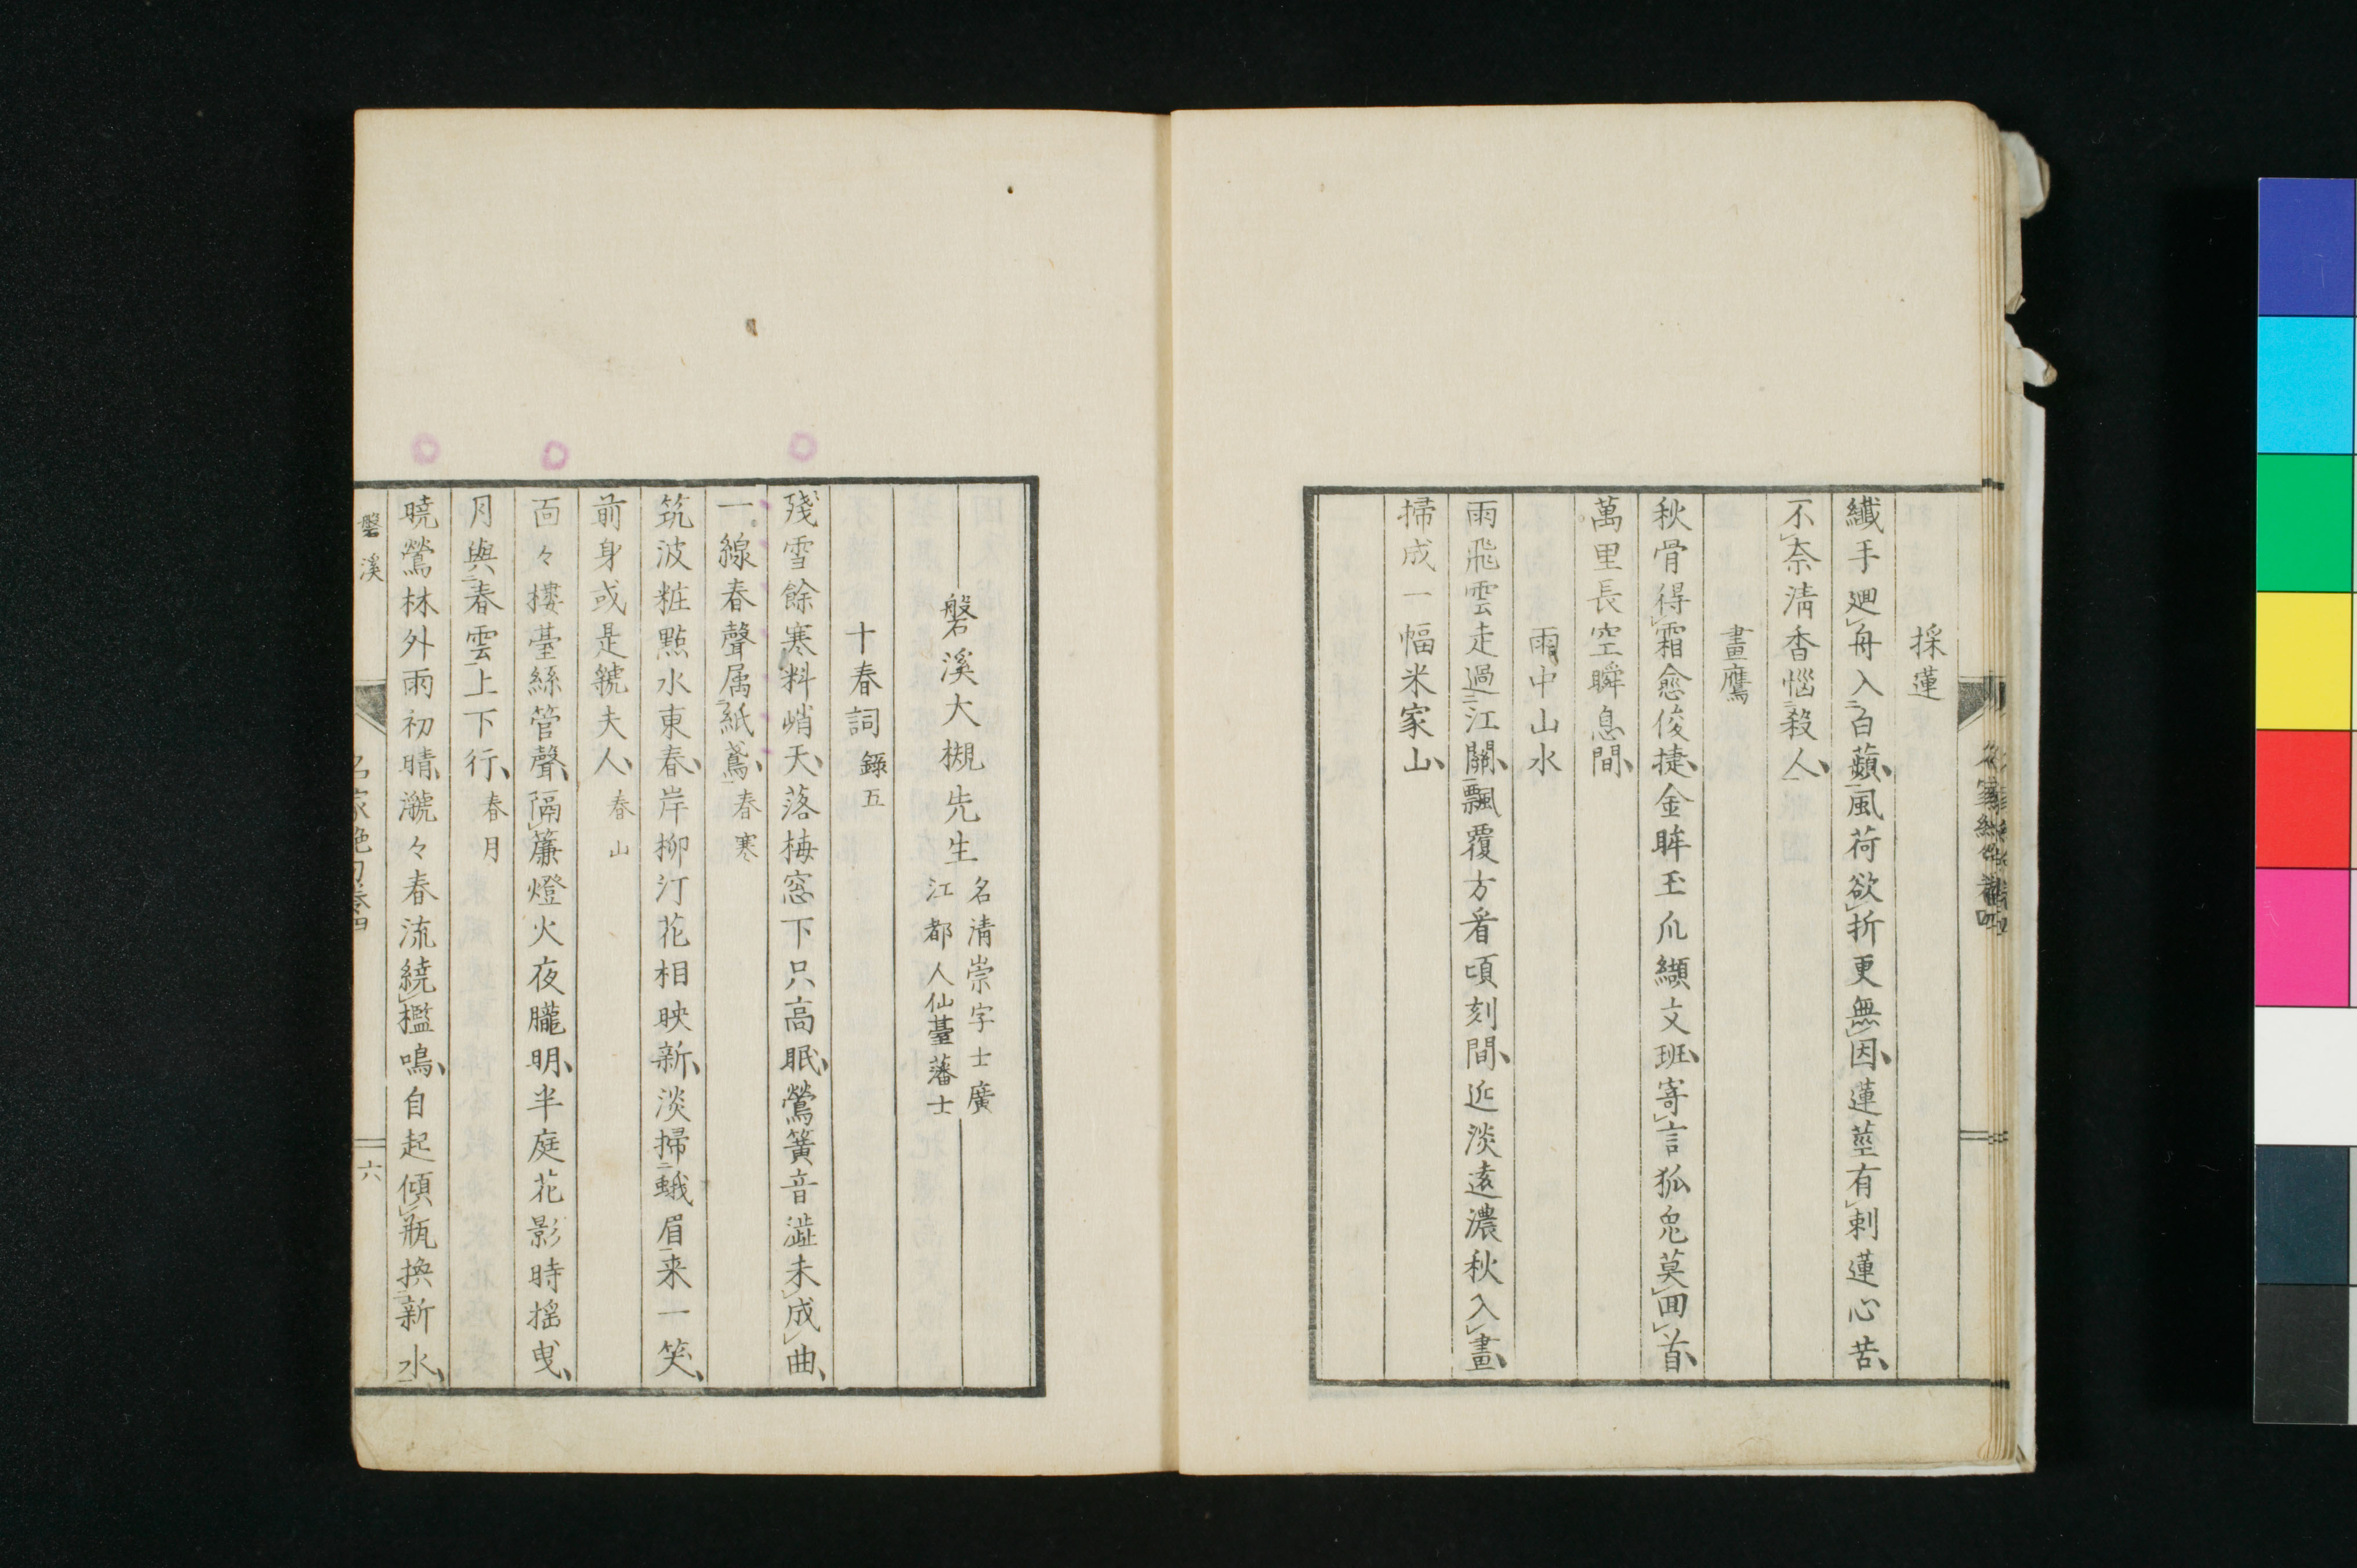 採蓮
纖手廻舟入白蘋風荷欲折更無因蓮莖有刺蓮心苦
不奈清香惱殺人
畫鷹
秋骨得霜愈俊捷金眸玉爪纈文班寄言狐兔莫回首
萬里長空瞬息間
雨中山水
雨飛雲走過江關飄覆方看頃刻間近淡遠濃秋入畫
掃成一幅米家山
磐溪大槻先生 名清崇字士廣
江都人仙臺藩士
十春詞 錄五
殘雪餘寒料峭天落梅窓下只高眠鶯簧音澁未成曲
一線春聲属紙鳶 春寒
筑波粧點水東春岸柳汀花相映新淡掃蛾眉来一笑
前身或是虢夫人 春山
面々樓臺絲管聲隔簾燈火夜朧明半庭花影時揺曳
月與春雲上下行 春月
曉鶯林外雨初晴㶁々春流繞檻鳴自起傾瓶換新水
磐溪
六